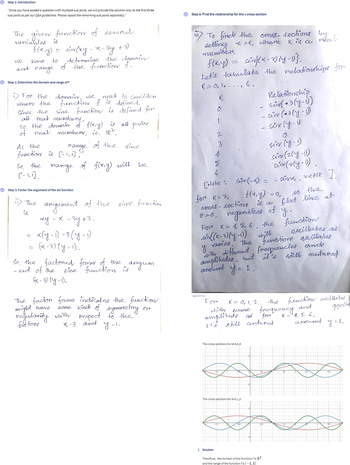 Step 1: Introduction
"Since you have asked a question with multiple sub-parts, we will provide the solution only to the first three
sub-parts as per our Q&A guidelines. Please repost the remaining sub-parts separately."
The given function of several
variables is
f(x,y) = sin(xy - x - 3y + 3)
we have to determine the domain
and range of the function f.
Step 2: Determine the domain and range of f
i) For the domain, we need to consider
where the function f is defined.
Since the sine function is defined for
all real numbers,
so the domain of f(x,y) is all pairs
of real numbers, i.e. R².
As the range of the sine
function is [-1,1],
So, the range of f(x,y) will be
[-1,1].
Step 3: Factor the argument of the sin function
ii) The argument of the sine function
is
xy - x - 3y + 3.
= x(y-1) - 3(y-1)
= (x-3)(y-1).
So, the factored form of the argum
-ent of the sine function is
(x-3)(y-1).
The factor form indicates the function
might have some kind of symmetry or
regularity with respect to the
factors x-3 and y-1.
Step 4: Find the relationship for the x cross-section
iii) To find the cross sections by
setting x=k, where k is a real
number.
f(k,y) = sin[(k-3)(y-1)].
Let's tabulate the relationships for
k=0,1,...,6.
k Relationship
0 - sin(3(y-1))
1 - sin(2(y-1))
2 - sin(y-1)
3 0
4 sin(y-1)
5 sin(2(y-1))
6 sin(3(y-1))
[Note: sin(-x) = -sin x, ∀x∈R].
for k=3, f(x,y)=0, so the
cross-section is a flat line at
z=0, regardless of y.
For k=4,5,6, the function
sin((k-3)(y-1)) oscillates as
y varies. The function oscillates
with different frequencies and
amplitudes, but it's still centered
around y=1.
For k=0,1,2, the function oscillates
with same frequency and
amplitude as for k=4,5,6,
it's still centered around y=1,
The cross-sections for k=0,1,2
The cross-sections for k=4,5,6
Solution
Therefore, the domain of the function f is R²
and the range of the function f is [-1,1]